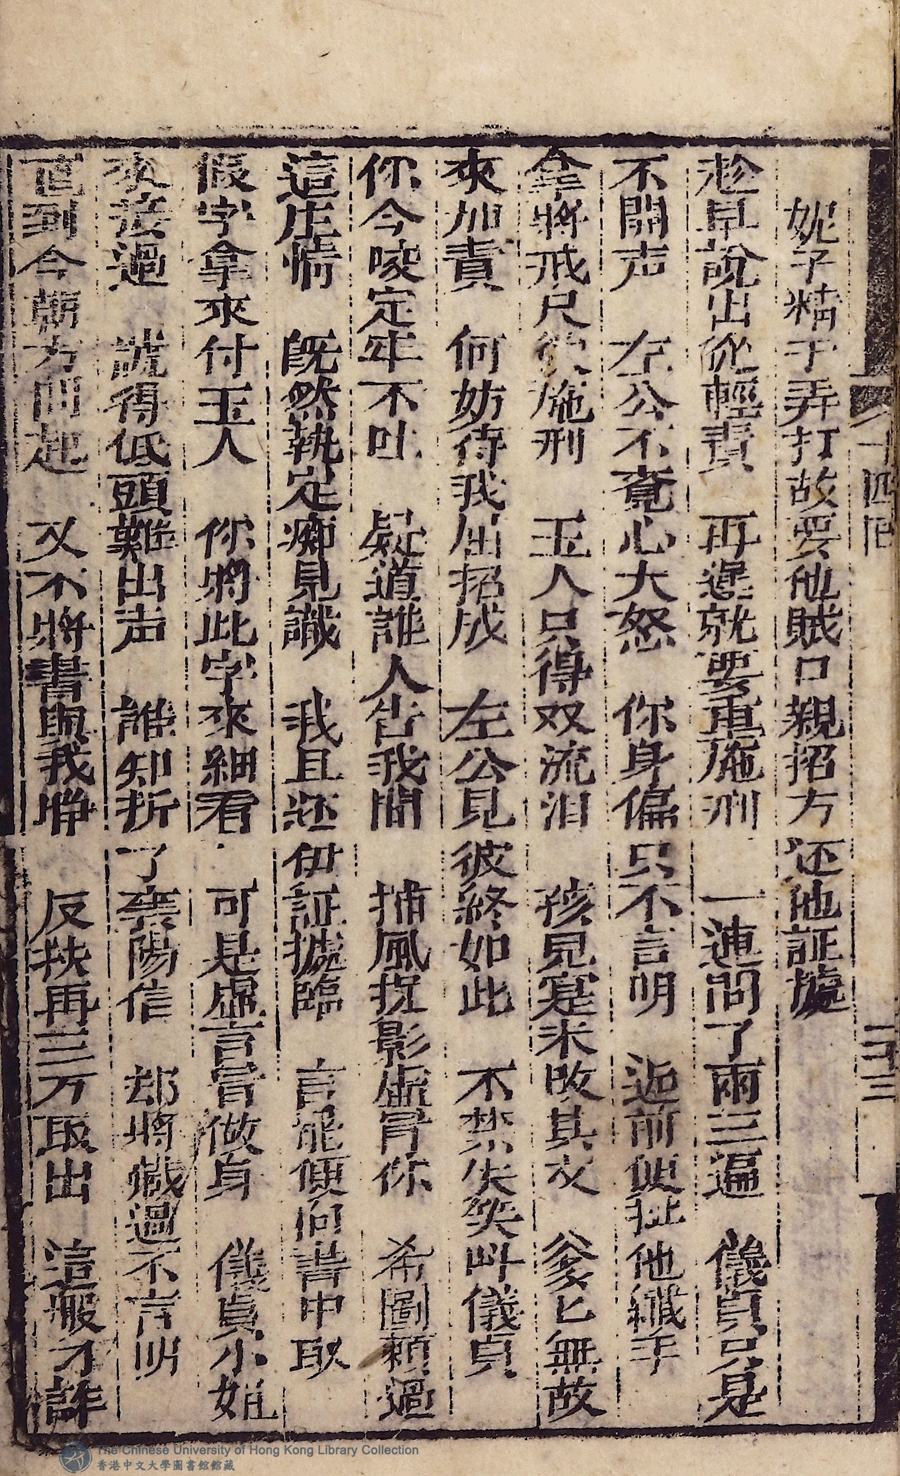 十四回 二十三
妮子精于弄打故要他贼口親招方还他証據
趁早說出從輕責 再遲就要重施刑 一連問了兩三遍 儀貞只是
不開声 左公不覚心大怒 你身偏只不言明 迎前便扯他纖手
拿將戒尺欲施刑 玉人只得双流泪 孩児寔未敗其文 爹匕無故
來加責 何妨待我屈招成 左公見彼終如此 不禁失笑叫儀貞
你今咬定牢不吐 疑道誰人告我聞 捕風捉影虛冐你 希圖賴過
這庄情 既然執定痴見識 我且还伊証據臨 言罷便向書中取
假字拿來付玉人 你將此字來細看 可是虛言冐做身 儀貞小姐
來接過 謊得低頭難出声 誰知折了襄陽信 却將藏過不言明
直到今朝方問起 又不將書與我睁 反挨再三方取出 這般才詐
The Chinese University of Hong Kong Library Collection
香港中文大學圖書館館藏